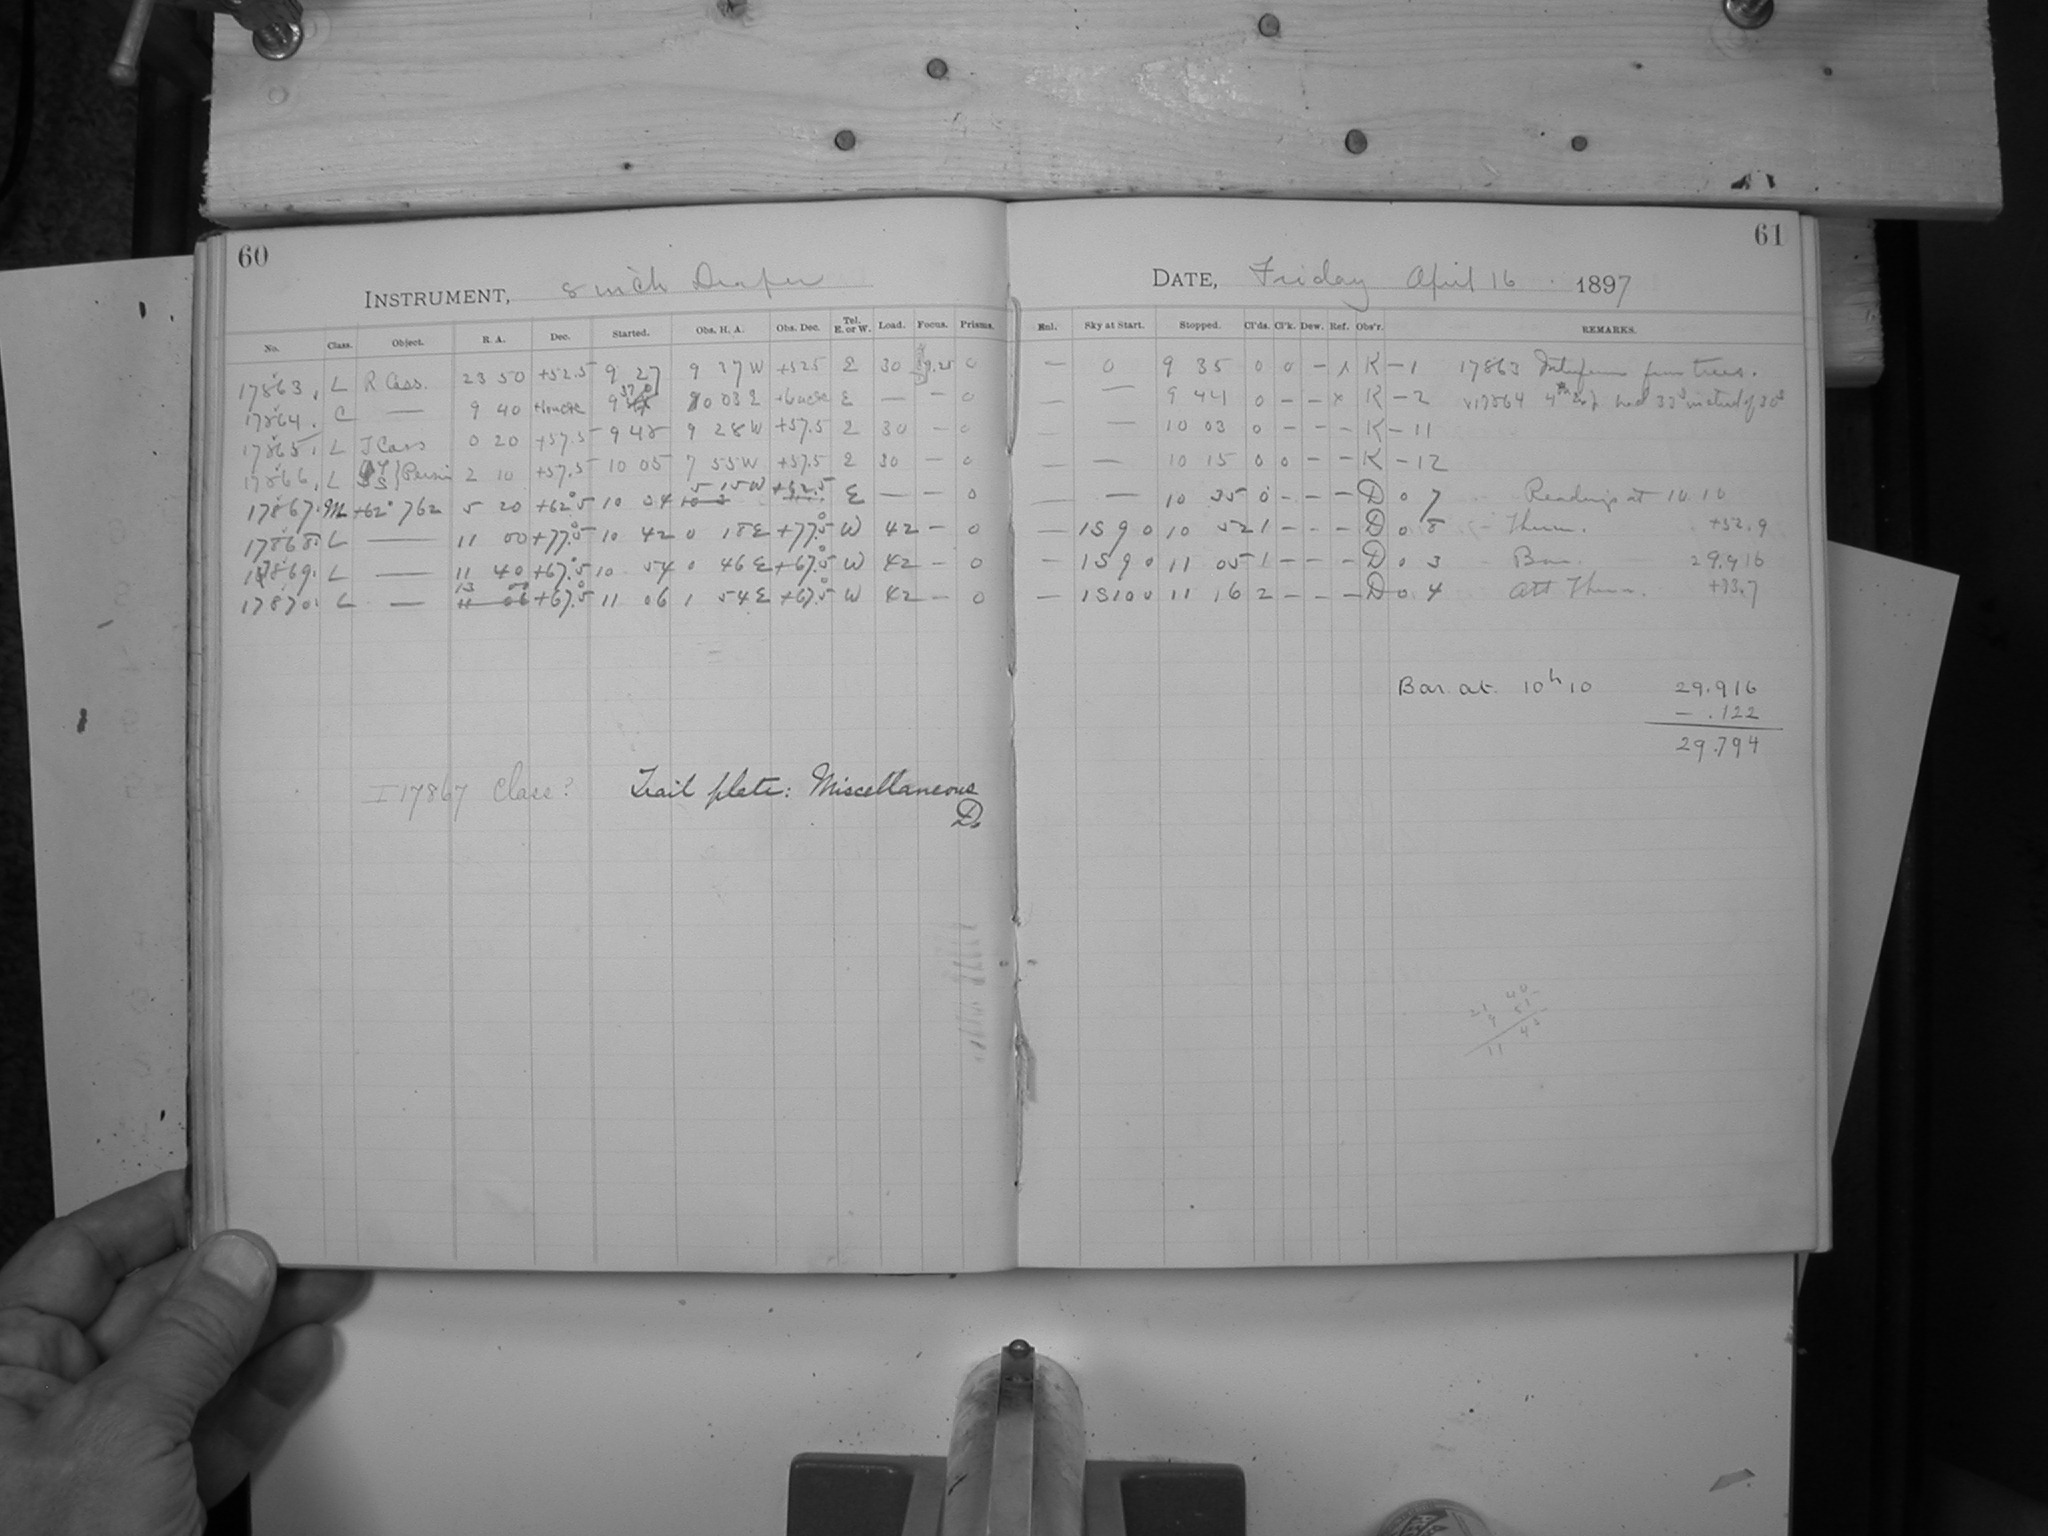 60
INSTRUMENT, 8 inch Draper
No. Class. Object. R. A. Dec. Started. Obs. H. A. Obs. Dec. Tel. E. or W. Load. Focus. Prisms.
17863. L R Cass. 23 50 +52.5 9 27 9 37 W +52.5 E 30 0
17864. C — 9 40 9 10 03 E E — — 0
17865. L T Cass 0 20 +57.5 9 48 9 28 W +57.5 E 30 — 0
17866. L S 2 10 +57.5 10 05 7 55 W +57.5 E 30 — 0
17867. M +62° 762 5 20 +62°.5 10 04 5 15 W +62.5 E — — 0
17868. L — 11 00 +77°.5 10 42 0 18 E +77°.5 W 42 — 0
17869. L — 11 40 +67°.5 10 54 0 46 E +67°.5 W 42 — 0
17870. L — 13 00 +67°.5 11 06 1 54 E +67°.5 W 42 — 0
I 17867 Class? Trail plate: Miscellaneous
D.
61
DATE, Friday April 16 1897
Enl. Sky at Start. Stopped. Cl'ds. Cl'k. Dew. Ref. Obs'r. REMARKS.
— 0 9 35 0 0 — x K — 1 17863 from trees.
— — 9 44 0 — — x K — 2 17864 4th Exp had 33s instead of 30s
— — 10 03 0 — — — K — 11
— — 10 15 0 0 — — K — 12
— — 10 35 0 — — — D 0 7 Readings at 10.10
— 1S90 10 52 1 — — — D 0 8 Therm. +52.9
— 1S90 11 05 1 — — — D 0 3 Bar. 29.916
— 1S100 11 16 2 — — — D 0 4 Att Therm. +73.7
Bar. at. 10h 10 29.916
— .122
29.794
21 40
9 51
11 43